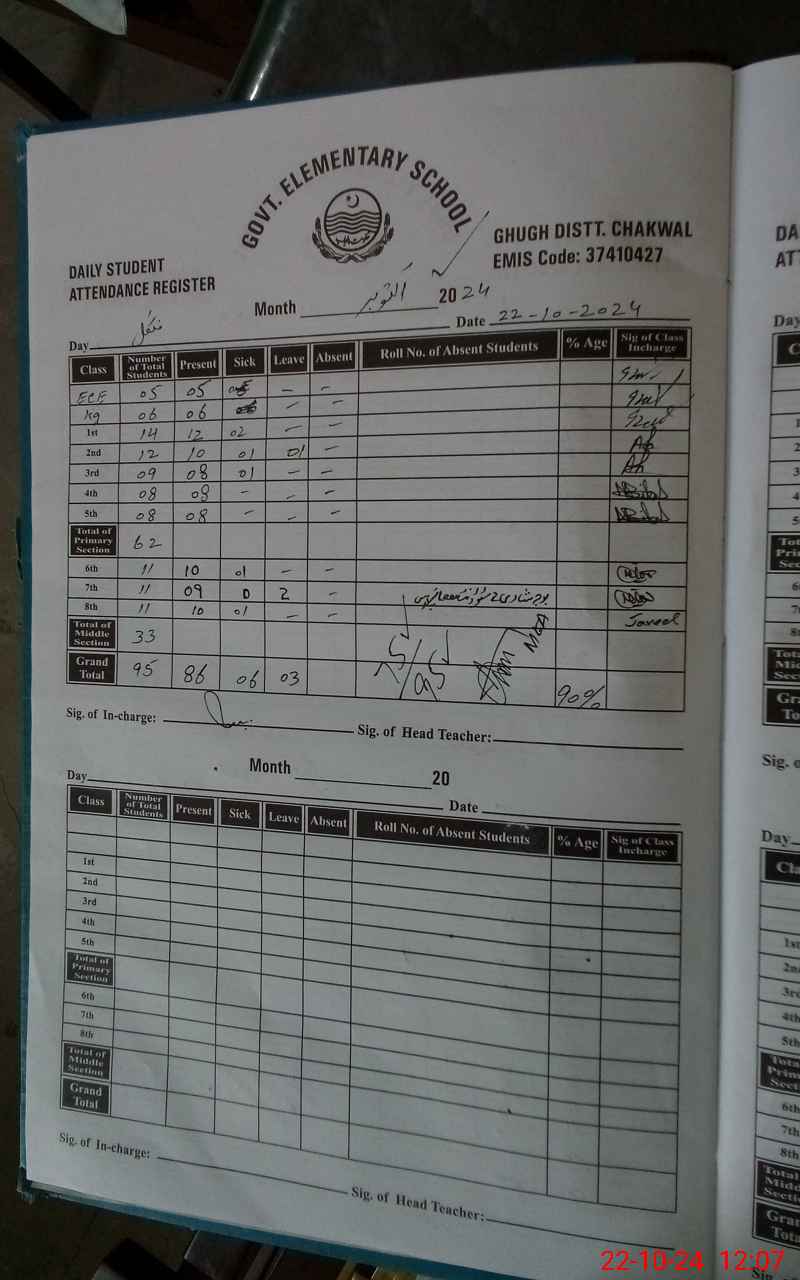 GOVT. ELEMENTARY SCHOOL
GHUGH DISTT. CHAKWAL
EMIS Code: 37410427
DAILY STUDENT
ATTENDANCE REGISTER
Month اکتوبر 2024
Day منگل Date 22-10-2024
Class Number of Total Students Present Sick Leave Absent Roll No. of Absent Students % Age Sig of Class Incharge
ECE 05 05 - -
Kg 06 06 - -
1st 14 12 02 - -
2nd 12 10 01 01 -
3rd 09 08 01 - -
4th 08 08 - - -
5th 08 08 - - -
Total of Primary Section 62
6th 11 10 01 - -
7th 11 09 0 2 -
8th 11 10 01 - - Javed
Total of Middle Section 33
Grand Total 95 86 06 03 90%
MEA
Sig. of In-charge: Sig. of Head Teacher:
Month 20
Day Date
Class Number of Total Students Present Sick Leave Absent Roll No. of Absent Students % Age Sig of Class Incharge
1st
2nd
3rd
4th
5th
Total of Primary Section
6th
7th
8th
Total of Middle Section
Grand Total
Sig. of In-charge: Sig. of Head Teacher:
22-10-24 12:07